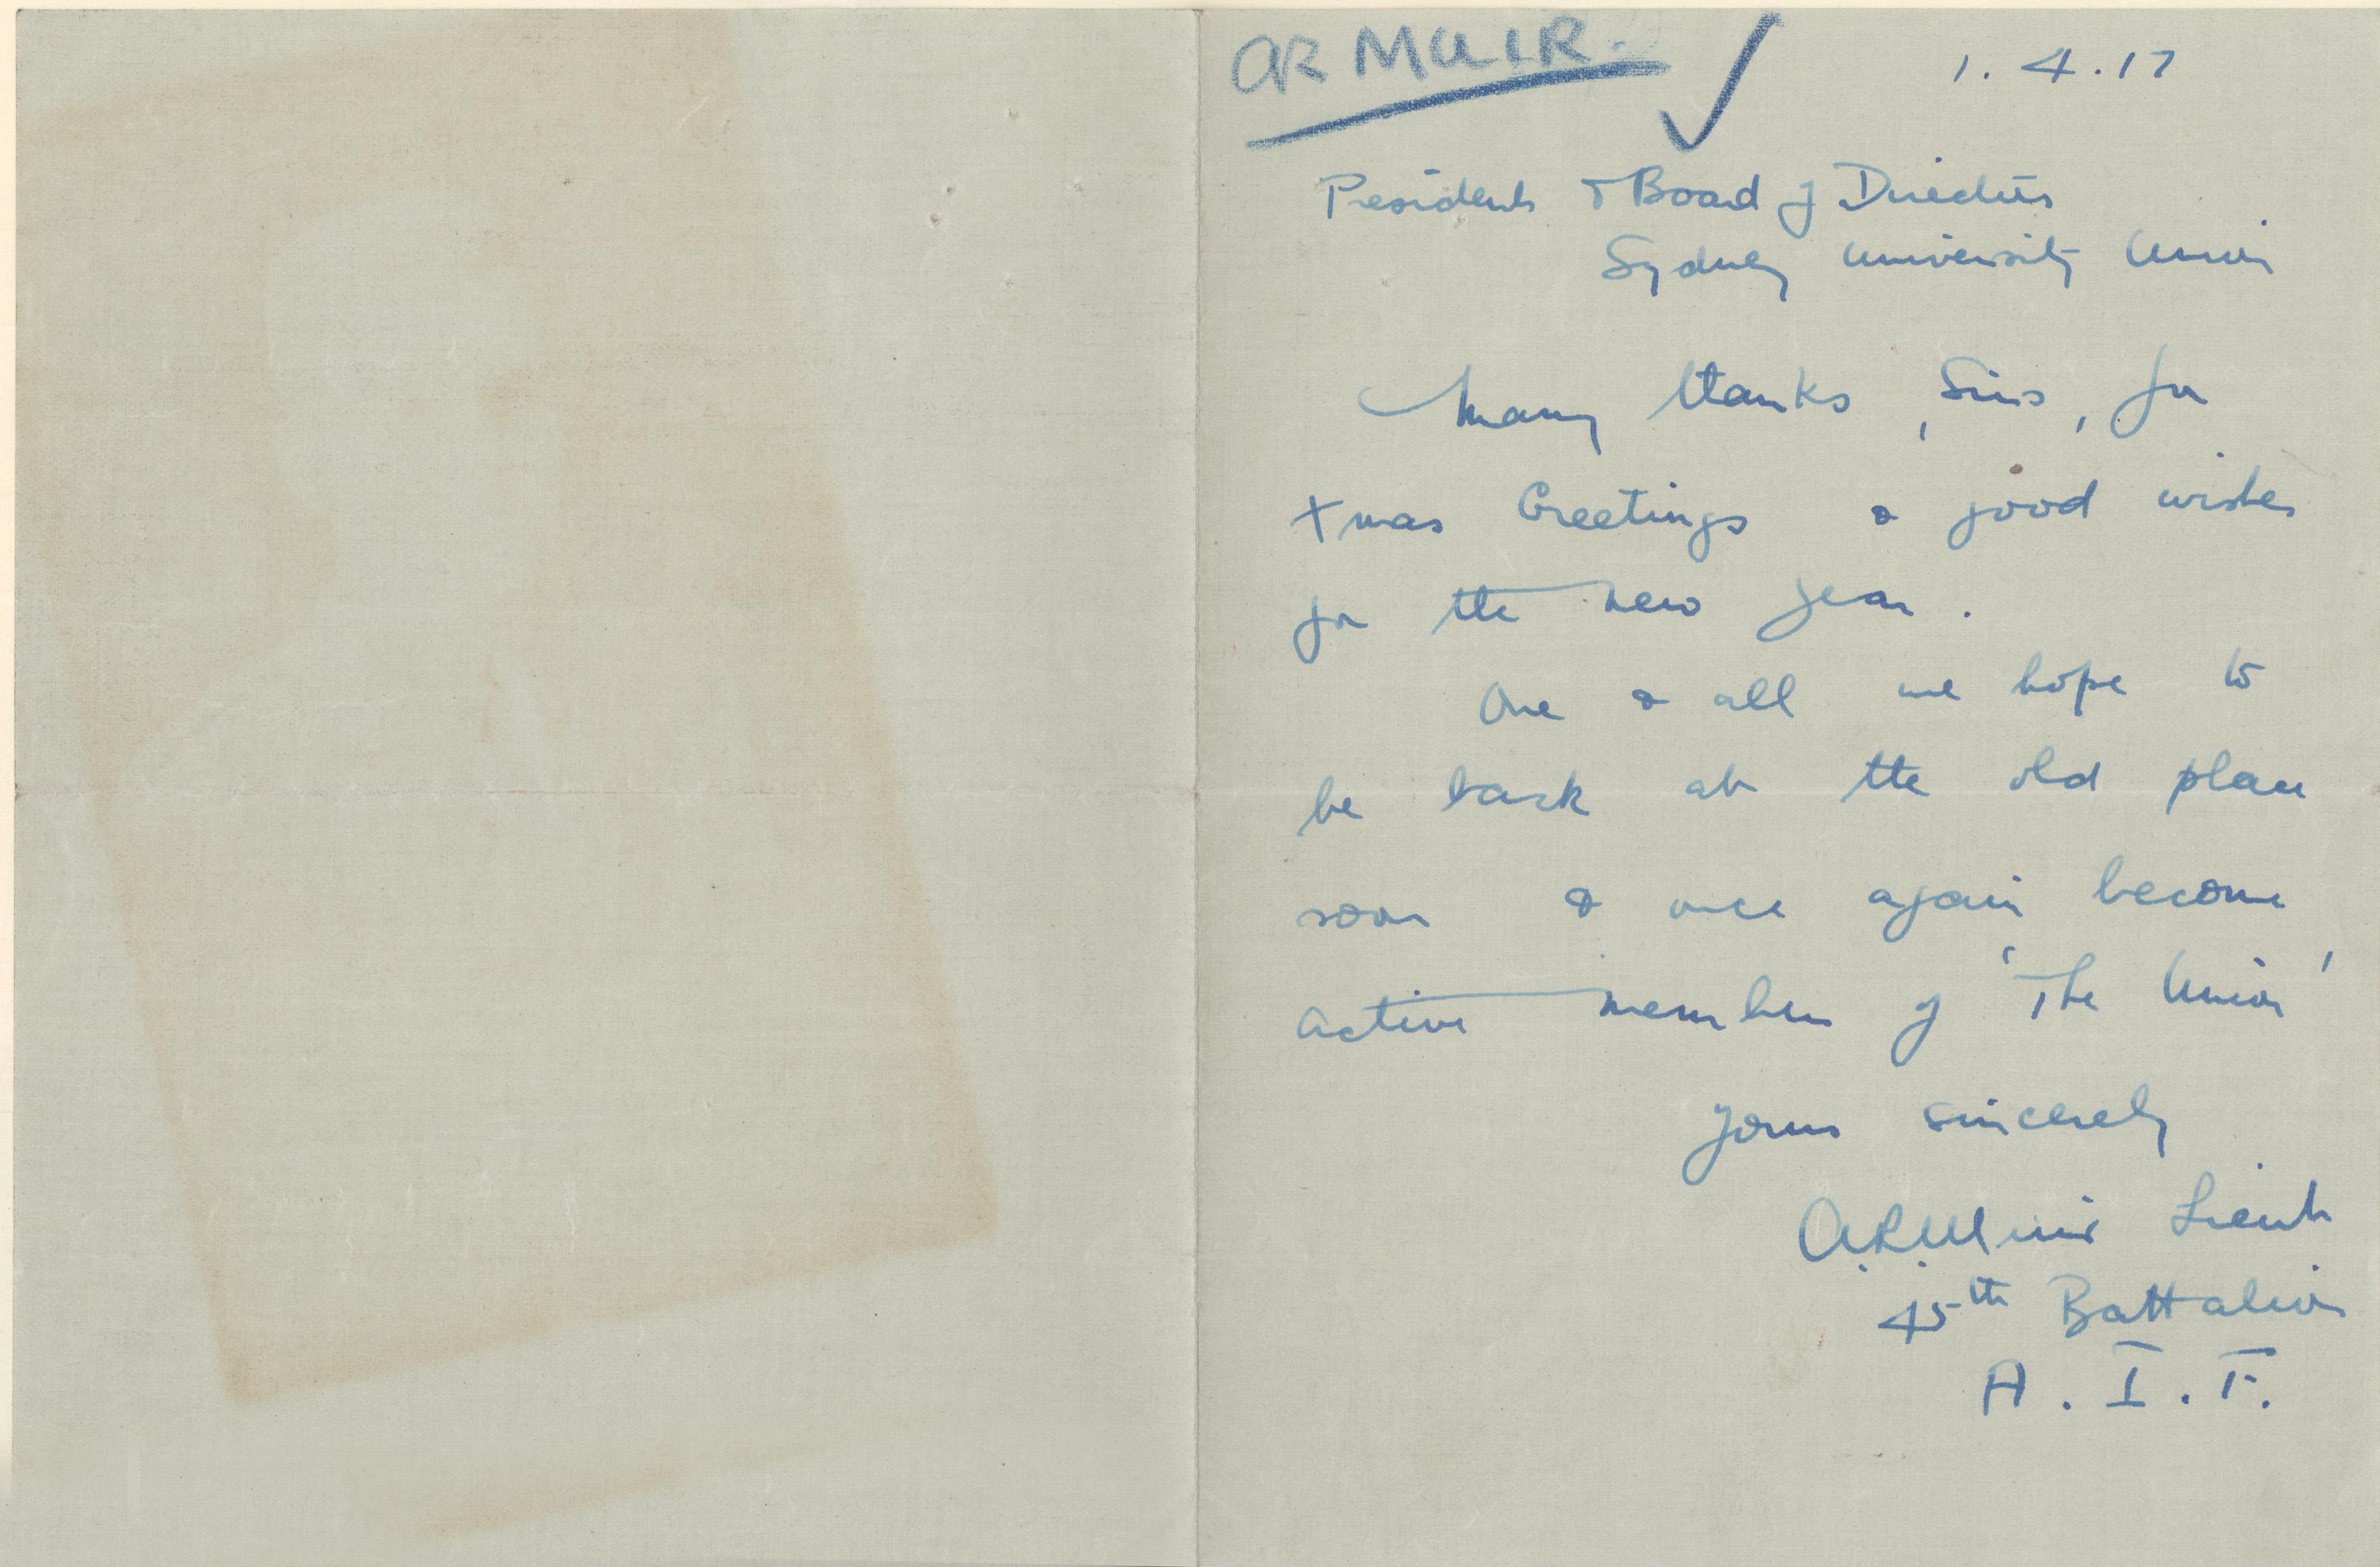 AR MUIR.
1.4.17
President & Board of Directors
Sydney University Union
Many thanks, Sirs, for
Xmas Greetings & good wishes
for the new year.
One & all we hope to
be back at the old place
soon & once again become
active members of 'The Union'
Yours sincerely
A.R. Muir Lieut
45th Battalion
A.I.F.